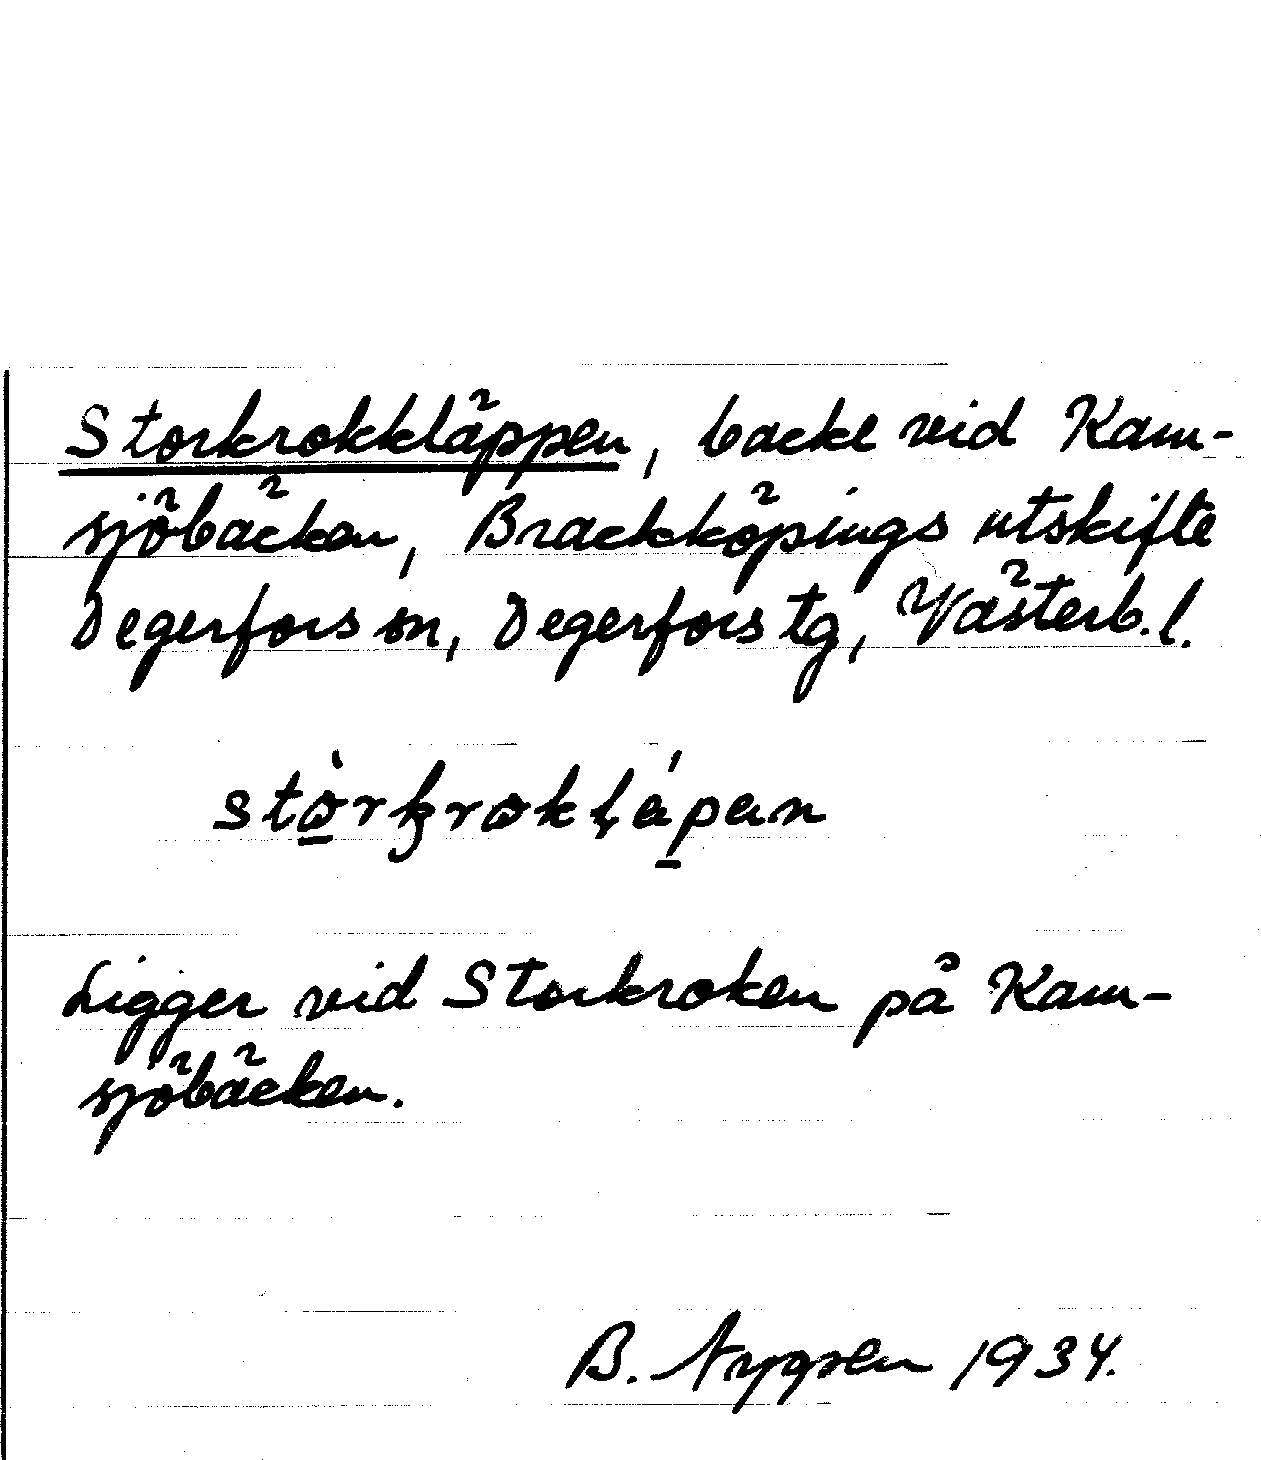 Storkrokkläppen, backe vid Kam-
sjöbäcken, Brackköpings utskifte
Degerfors sn, Degerfors tg, Västerb. l.
Ligger vid Storkroken på Kam-
sjöbäcken.
B. 1934.